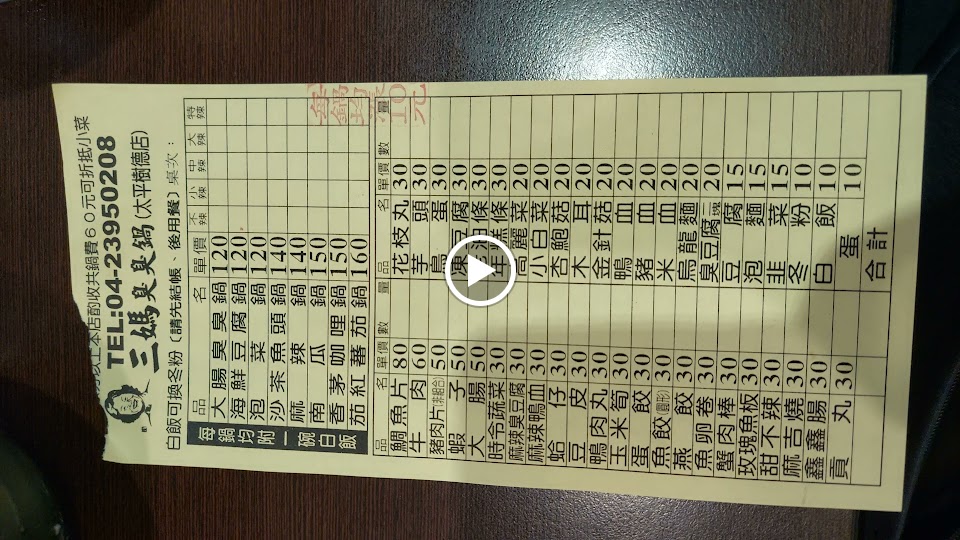 以上本店酌收共鍋費60元可折抵小菜
TEL:04-23950208
三媽臭臭鍋(太平樹德店)
白飯可換冬粉(請先結帳、後用餐)桌次:
每鍋均附一碗白飯
品名 單價 不辣 小辣 中辣 大辣 特辣
大腸臭臭鍋 120
海鮮豆腐鍋 120
泡菜鍋 120
沙茶魚頭鍋 140
麻辣鍋 140
南瓜鍋 150
香茅咖哩鍋 150
茄紅蕃茄鍋 160
每鍋均漲10元
品名 單價 數量 品名 單價 數量
鯛魚片 80 花枝丸 30
牛肉 60 芋頭 30
豬肉片 50 鳥蛋 30
蝦子 50 凍豆腐 30
大腸 50 油條 30
時令蔬菜 30 年糕條 30
麻辣臭豆腐 30 高麗菜 20
麻辣鴨血 30 小白菜 20
蛤仔 30 杏鮑菇 20
豆皮 30 木耳 20
鴨肉丸 30 金針菇 20
玉米筍 30 鴨血 20
蛋餃 30 豬血 20
魚餃(圓形) 30 米血 20
燕餃 30 烏龍麵 20
魚卵卷 30 臭豆腐一塊 20
蟹肉棒 30 豆腐 15
玫瑰魚板 30 泡麵 15
甜不辣 30 韭菜 15
麻吉燒 30 冬粉 10
鑫鑫腸 30 白飯 10
貢丸 30 蛋 10
合計